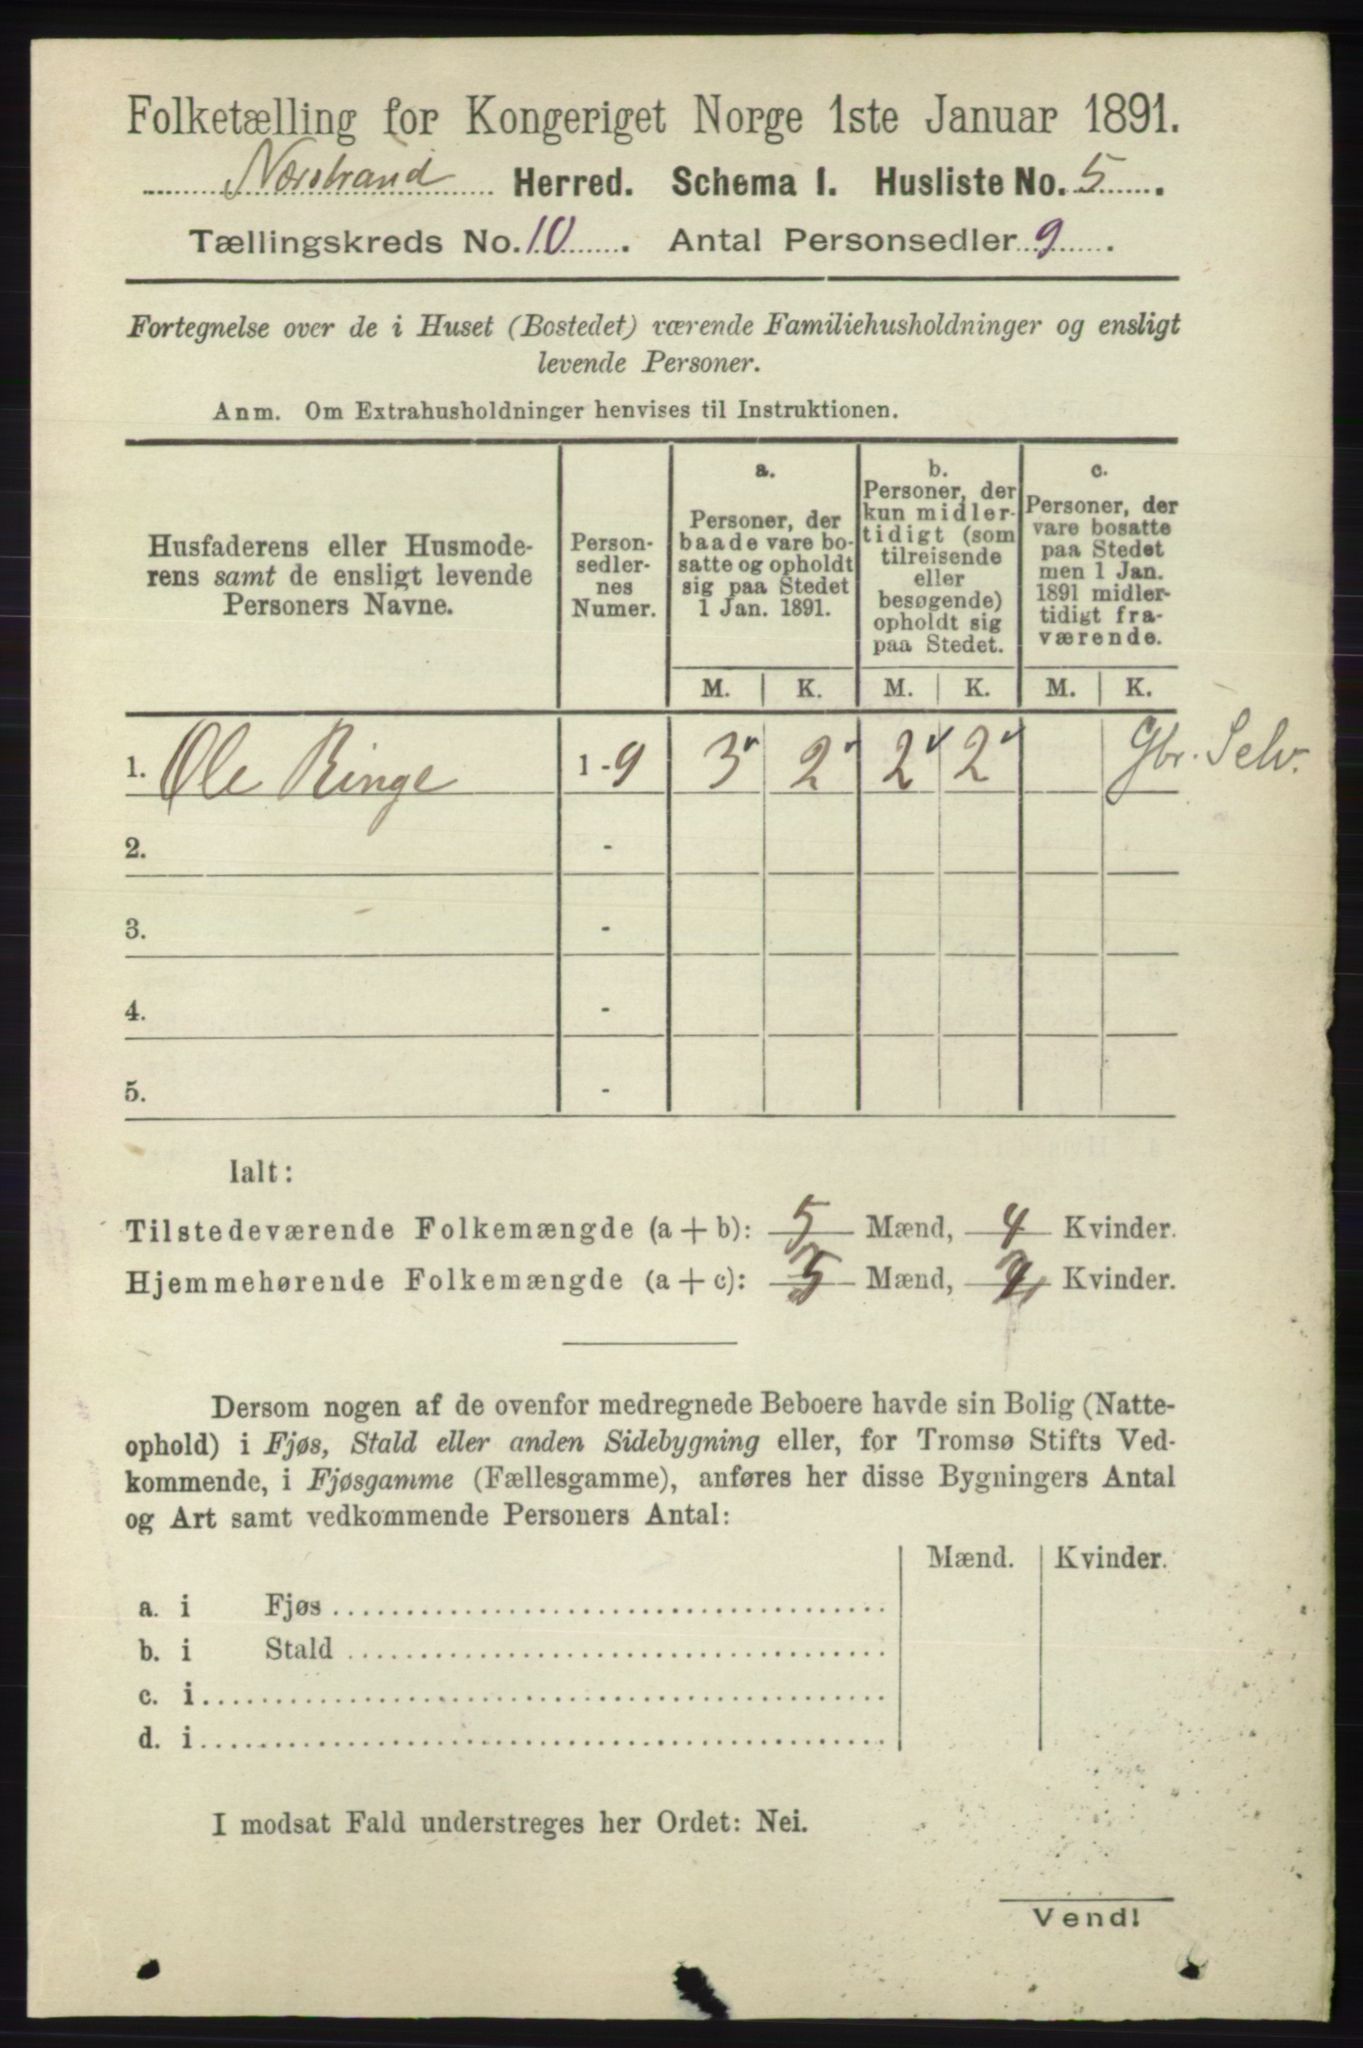 Folketælling for Kongeriget Norge 1ste Januar 1891.
Nærstrand Herred. Schema I. Husliste No. 5.
Tællingskreds No. 10. Antal Personsedler 9.
Fortegnelse over de i Huset (Bostedet) værende Familiehusholdninger og ensligt
levende Personer.
Anm. Om Extrahusholdninger henvises til Instruktionen.
Husfaderens eller Husmode-
rens samt de ensligt levende
Personers Navne.
Person-
sedler-
nes
Numer.
a.
Personer, der
baade vare bo-
satte og opholdt
sig paa Stedet
1 Jan. 1891.
b.
Personer, der
kun midler-
tidigt (som
tilreisende
eller
besøgende)
opholdt sig
paa Stedet.
c.
Personer, der
vare bosatte
paa Stedet
men 1 Jan.
1891 midler-
tidigt fra-
værende.
M. K. M. K. M. K.
1. Ole Ringe 1-9 3 2 2 2 Gbr. Selv.
2. -
3. -
4. -
5. -
Ialt:
Tilstedeværende Folkemængde (a + b): 5 Mænd, 4 Kvinder.
Hjemmehørende Folkemængde (a + c): 3 Mænd, 2 Kvinder.
Dersom nogen af de ovenfor medregnede Beboere havde sin Bolig (Natte-
ophold) i Fjøs, Stald eller anden Sidebygning eller, for Tromsø Stifts Ved-
kommende, i Fjøsgamme (Fællesgamme), anføres her disse Bygningers Antal
og Art samt vedkommende Personers Antal:
Mænd. Kvinder.
a. i Fjøs
b. i Stald
c. i
d. i
I modsat Fald understreges her Ordet: Nei.
Vend!